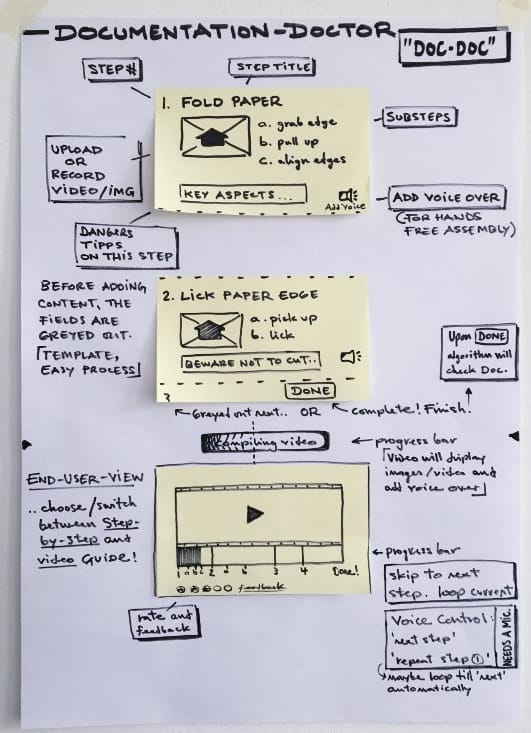 — DOCUMENTATION-DOCTOR
"DOC-DOC"
STEP#
STEP TITLE
1. FOLD PAPER
a. grab edge
b. pull up
c. align edges
SUBSTEPS
UPLOAD
OR
RECORD
VIDEO/IMG
KEY ASPECTS...
Add Voice
ADD VOICE OVER
(FOR HANDS
FREE ASSEMBLY)
DANGERS
TIPPS
ON THIS STEP
BEFORE ADDING
CONTENT, THE
FIELDS ARE
GREYED OUT.
[TEMPLATE,
EASY PROCESS]
2. LICK PAPER EDGE
a. pick up
b. lick
BEWARE NOT TO CUT..
DONE
3
Upon DONE
algorithm will
check Doc.
Greyed out next.. OR
complete! Finish!
Compiling video
progress bar
[Video will display
images/video and
add voice over]
END-USER-VIEW
.. choose/switch
between Step-
by-step and
video GUIDE!
1 a b c 2 a b 3 4 Done!
feedback
progress bar
rate and
feedback
skip to next
step. loop current
Voice Control:
'next step'
'repeat step ①'
NEEDS A MIC.
maybe loop till 'next'
automatically